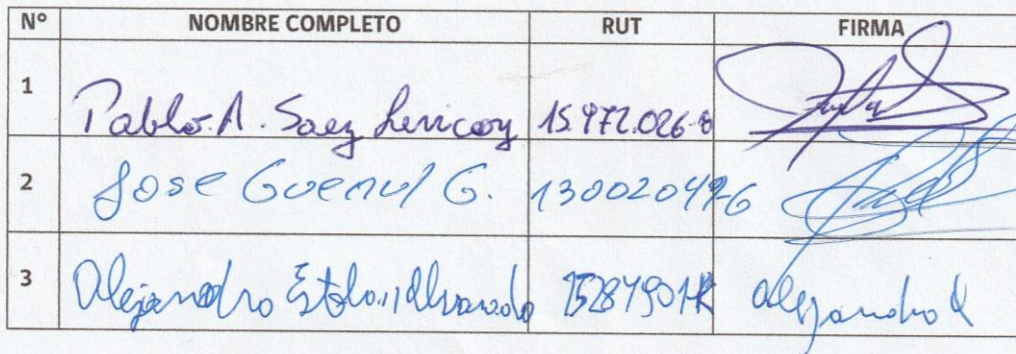 N° NOMBRE COMPLETO RUT FIRMA
1 Pablo. A. Saez Lencoy 15.972.026-8
2 Jose Guenul G. 13002049-6
3 Alejandro Alvarado 15284901-K alejandro